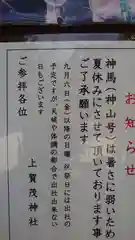 お知らせ
神馬(神山号)は暑さに弱いため
夏休みにさせて頂いております事
ご了承願います
九月六日(金)以降の日曜、祝祭日には出社の
予定ですが、天候や体調の都合で出社出来ない
日もございます
ご参拝各位
上賀茂神社